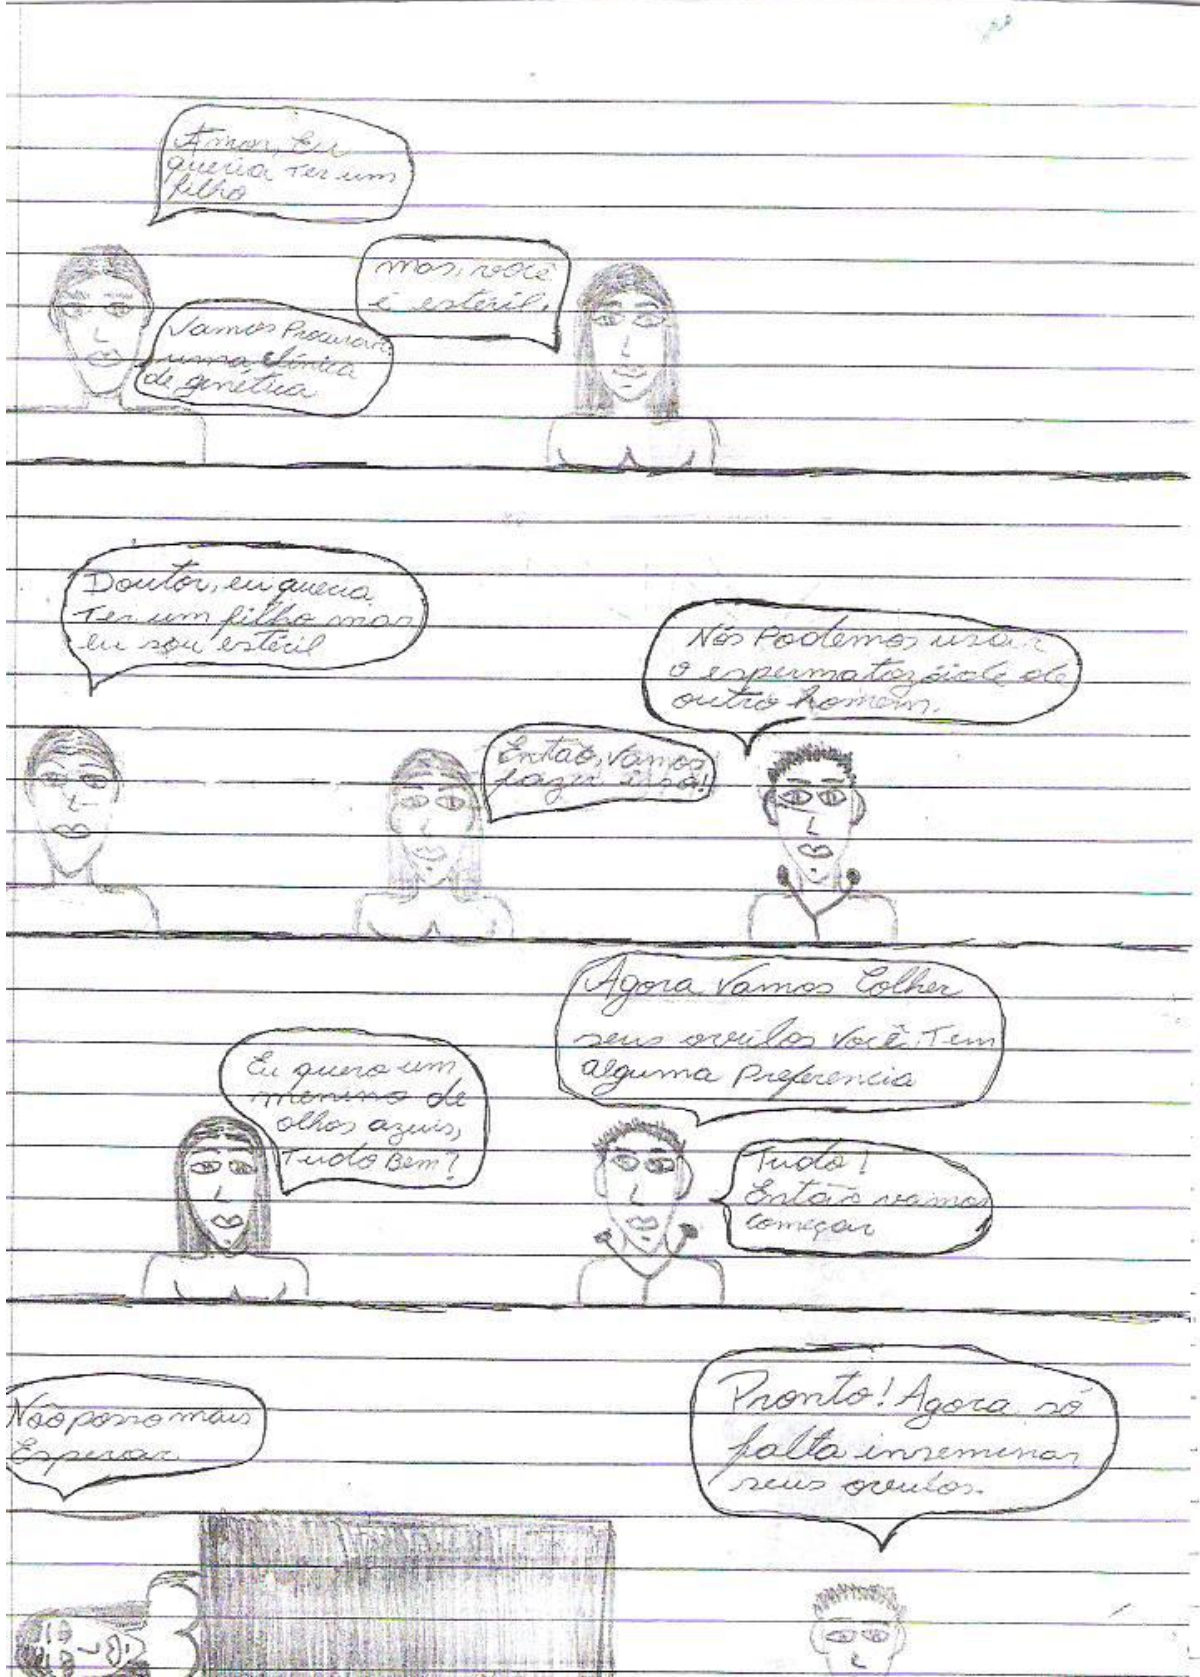 Amor, Eu
queria Ter um
filho
mas, você
é estéril.
Vamos Procurar
uma clínica
de genética
Doutor, eu queria
Ter um filho mas
eu sou estéril
Nós Podemos usar
o espermatozóide de
outro homem.
Então, Vamos
fazer isso!
Agora Vamos Colher
seus ovulos Você Tem
alguma Preferencia
Eu quero um
menino de
olhos azuis,
Tudo Bem?
Tudo!
Então vamos
começar
Não posso mais
Esperar
Pronto! Agora só
falta inseminar
seus ovulos.